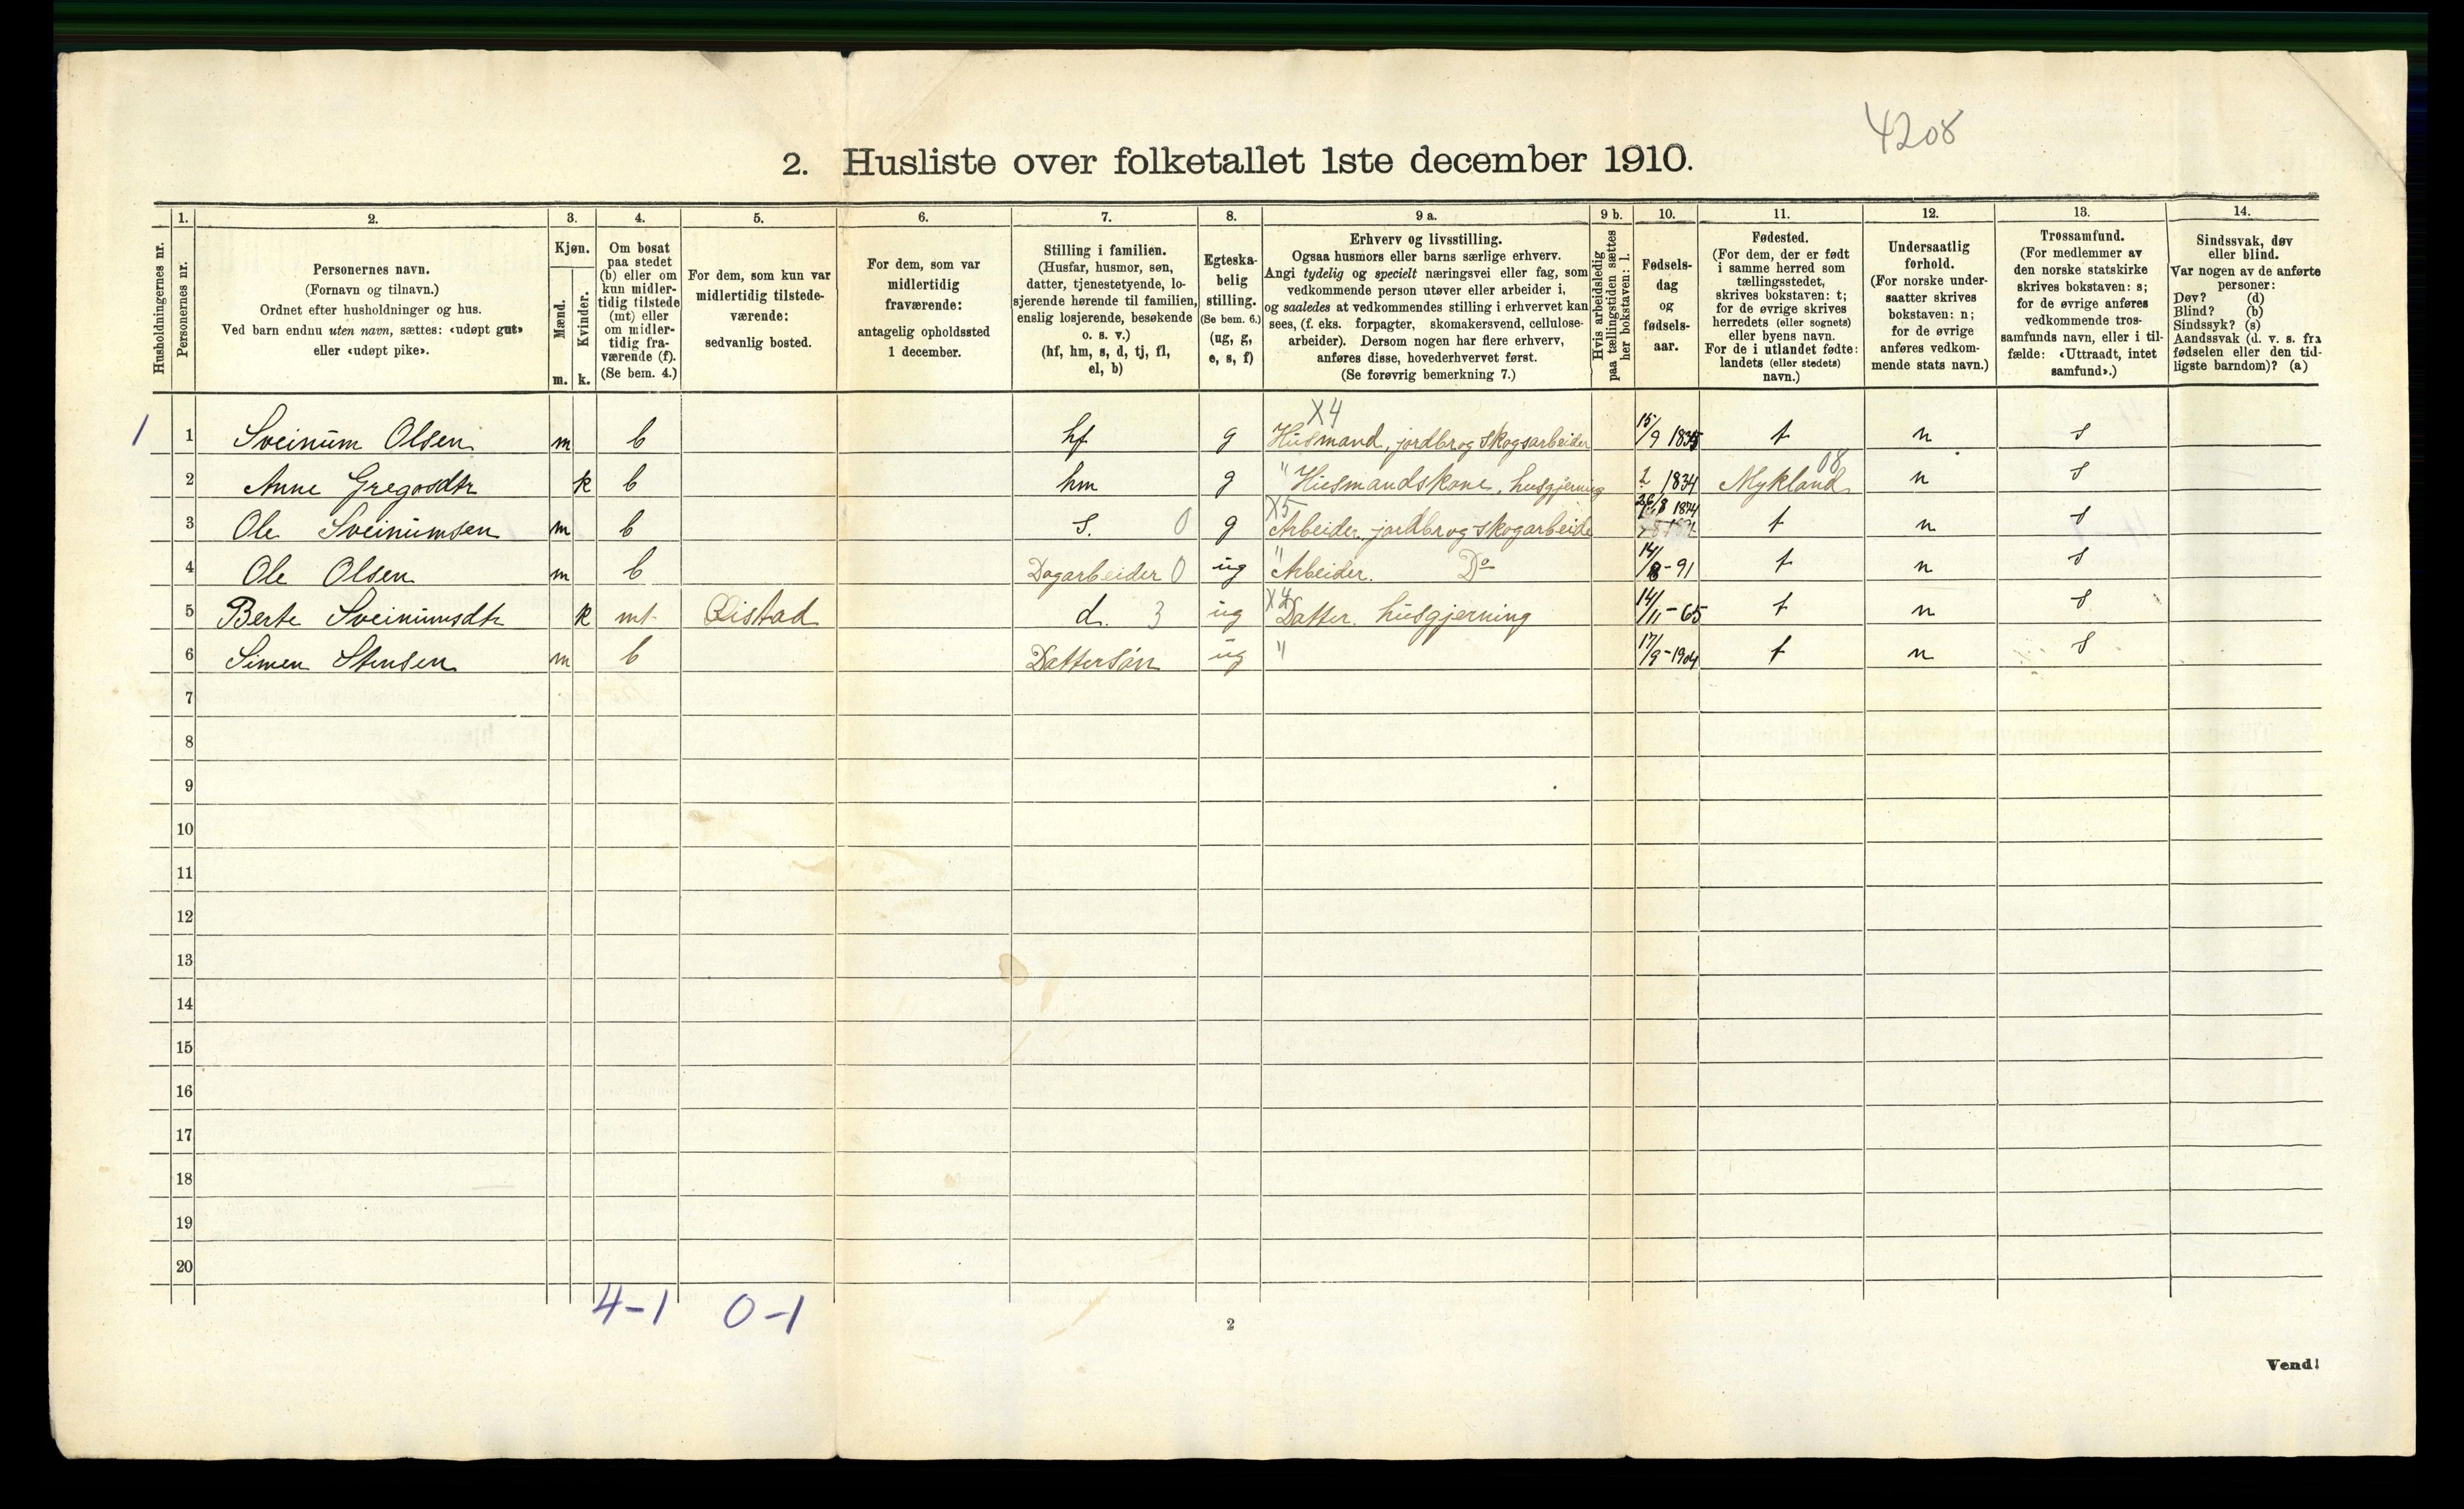 4208
2. Husliste over folketallet 1ste december 1910.
Husholdningernes nr.
1.
Personernes nr.
2.
Personernes navn.
(Fornavn og tilnavn.)
Ordnet efter husholdninger og hus.
Ved barn endnu uten navn, sættes: «udøpt gut»
eller «udøpt pike».
3.
Kjøn.
Mænd.
Kvinder.
m. k.
4.
Om bosat
paa stedet
(b) eller om
kun midler-
tidig tilstede
(mt) eller
om midler-
tidig fra-
værende (f).
(Se bem. 4.)
5.
For dem, som kun var
midlertidig tilstede-
værende:
sedvanlig bosted.
6.
For dem, som var
midlertidig
fraværende:
antagelig opholdssted
1 december.
7.
Stilling i familien.
(Husfar, husmor, søn,
datter, tjenestetyende, lo-
sjerende hørende til familien,
enslig losjerende, besøkende
o. s. v.)
(hf, hm, s, d, tj, fl,
el, b)
8.
Egteska-
belig
stilling.
(Se bem. 6.)
(ug, g,
e, s, f)
9 a.
Erhverv og livsstilling.
Ogsaa husmors eller barns særlige erhverv.
Angi tydelig og specielt næringsvei eller fag, som
vedkommende person utøver eller arbeider i,
og saaledes at vedkommendes stilling i erhvervet kan
sees, (f. eks. forpagter, skomakersvend, cellulose-
arbeider). Dersom nogen har flere erhverv,
anføres disse, hovederhvervet først.
(Se forøvrig bemerkning 7.)
9 b.
Hvis arbeidsledig
paa tællingstiden sættes
her bokstaven: l.
10.
Fødsels-
dag
og
fødsels-
aar.
11.
Fødested.
(For dem, der er født
i samme herred som
tællingsstedet,
skrives bokstaven: t;
for de øvrige skrives
herredets (eller sognets)
eller byens navn.
For de i utlandet fødte:
landets (eller stedets)
navn.)
12.
Undersaatlig
forhold.
(For norske under-
saatter skrives
bokstaven: n;
for de øvrige
anføres vedkom-
mende stats navn.)
13.
Trossamfund.
(For medlemmer av
den norske statskirke
skrives bokstaven: s;
for de øvrige anføres
vedkommende tros-
samfunds navn, eller i til-
fælde: «Uttraadt, intet
samfund».)
14.
Sindssvak, døv
eller blind.
Var nogen av de anførte
personer:
Døv? (d)
Blind? (b)
Sindssyk? (s)
Aandssvak (d. v. s. fra
fødselen eller den tid-
ligste barndom)? (a)
X4
1 1 Sveinum Olsen m b hf g Husmand, jordbr og skogsarbeider 15/9 1835 t n s
08
2 Anne Gregosdtr k b hm g " Husmandskone, husgjerning 1834 Mykland n s
X5 26/8 1874
3 Ole Sveinumsen m b s. 0 g Arbeider, jordbr og skogarbeide t n s
4 Ole Olsen m b Dagarbeider 0 ug " Arbeider. Do 14/8 - 91 t n s
X4
5 Berte Sveinumsdtr k mt Øistad d. 3 ug Datter. husgjerning 14/11 - 65 t n s
6 Simen Stensen m b Dattersøn ug " 17/9 - 1904 t n s
7
8
9
10
11
12
13
14
15
16
17
18
19
20
4-1 0-1
2
Vend!